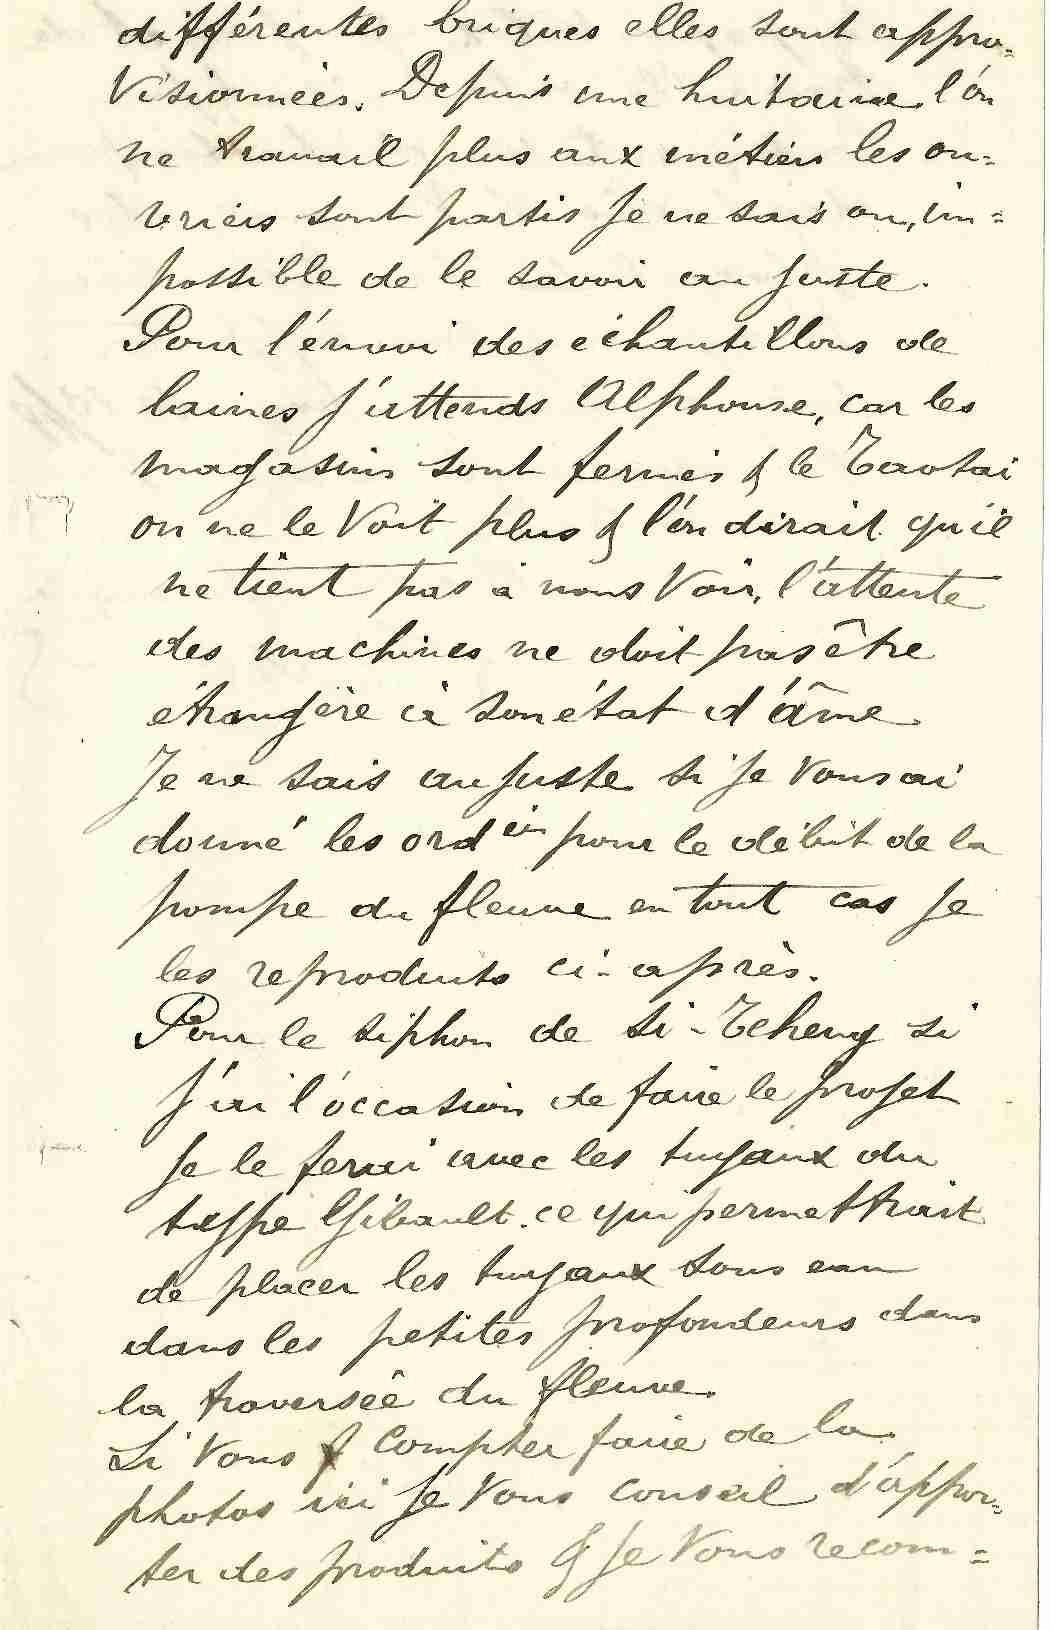 différentes briques elles sont appro=
visionnées. Depuis une huitaine l'on
ne travail plus aux métiers les ou=
vriers sont partis je ne sais ou, im=
possible de le savoir au juste.
Pour l'énvoi des échantillons de
laines j'attends Alphonse, car les
magasins sont fermés & le Taotai
on ne le voit plus & l'on dirait qu'il
ne tient pas à nous voir, l'attente
des machines ne doit pas être
étrangère à son état d'âme
Je ne sais au juste si je vous ai
donné les ord pour le débit de la
pompe du fleuve en tout cas je
les reproduits ci-après.
Pour le siphon de Si-Tcheng si
j'ai l'occasion de faire le projet
je le ferai avec les tuyaux du
type Gibault. ce qui permettrait
de placer les tuyaux sous eau
dans les petites profondeurs dans
la traversée du fleuve.
Si vous compter faire de la
photos ici je vous conseil d'appor=
ter des produits & je vous recom=